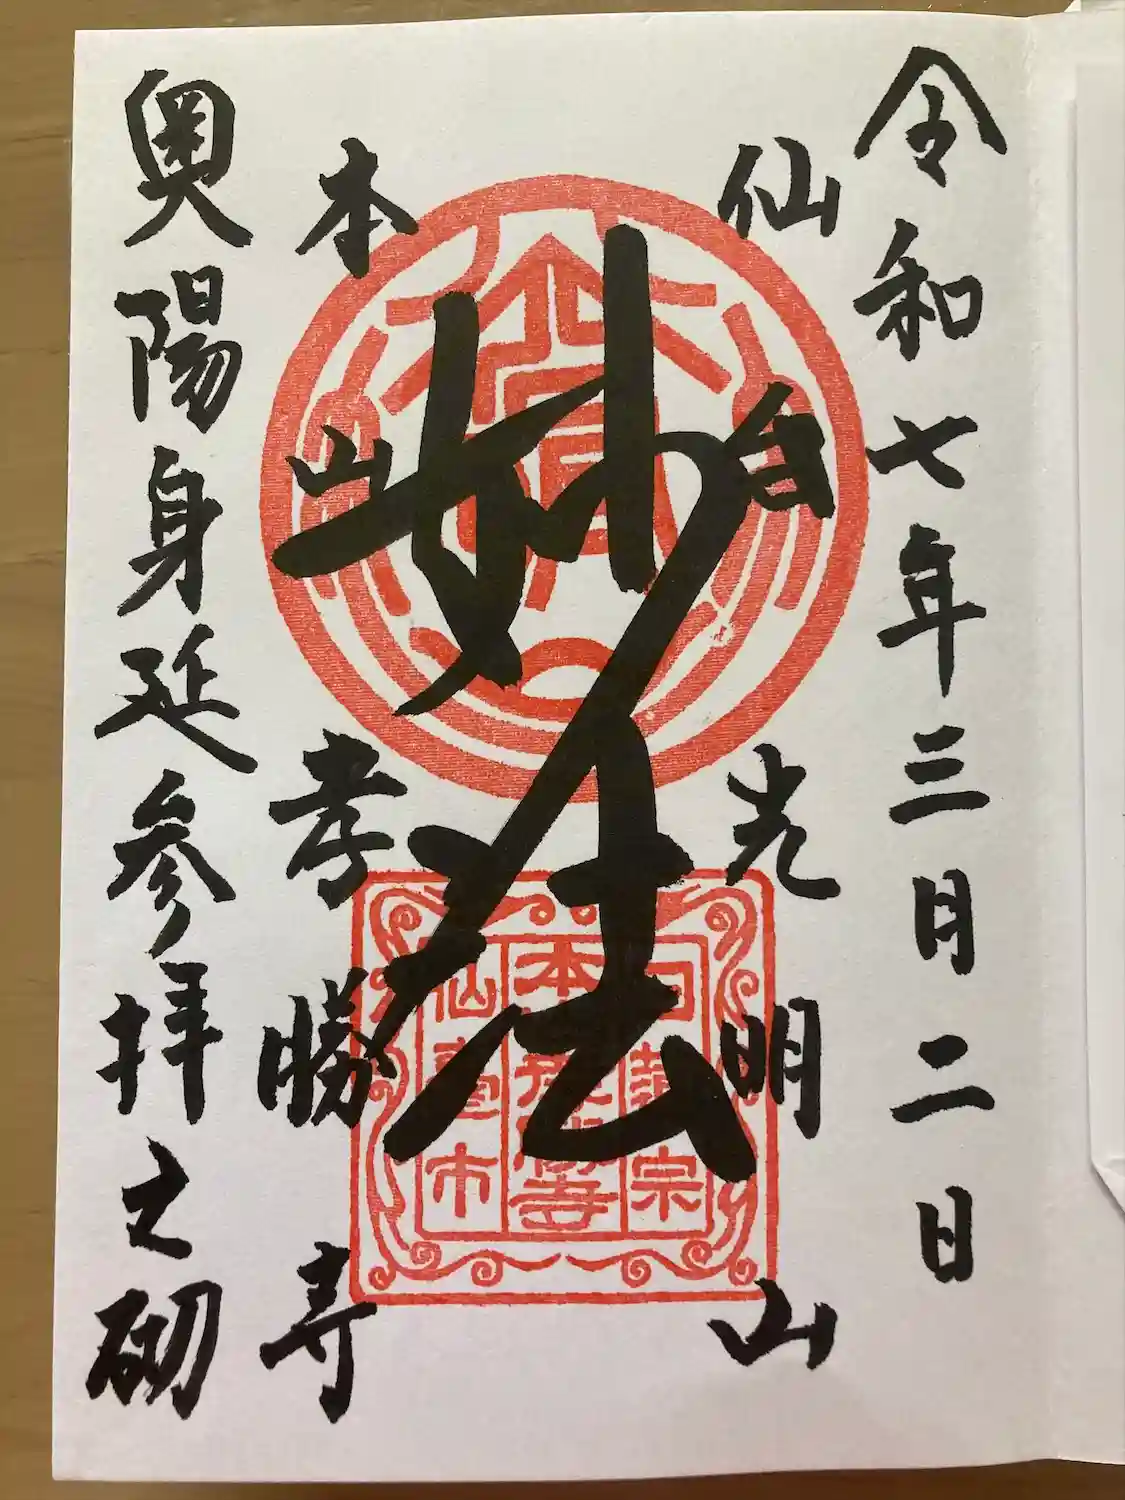 令和七年三月二日
仙台 光明山
妙法
本山 孝勝寺
奥陽身延参拝之砌
日蓮宗
本山孝勝寺
仙臺市